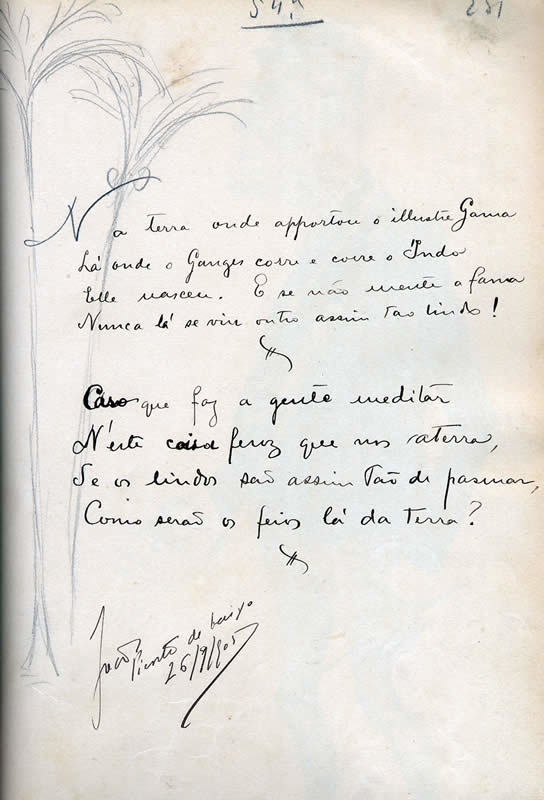 54.ª
231
Na terra onde apportou o illustre Gama
Lá onde o Ganges corre e corre o Indo
Elle nasceu. E se não mente a fama
Nunca lá se viu outro assim tao lindo!
Caso que faz a gente meditar
N'este caso feroz que nos aterra,
Se os lindos são assim tão de pasmar,
Como serão os feios lá da terra?
João de baixo
26/9/905